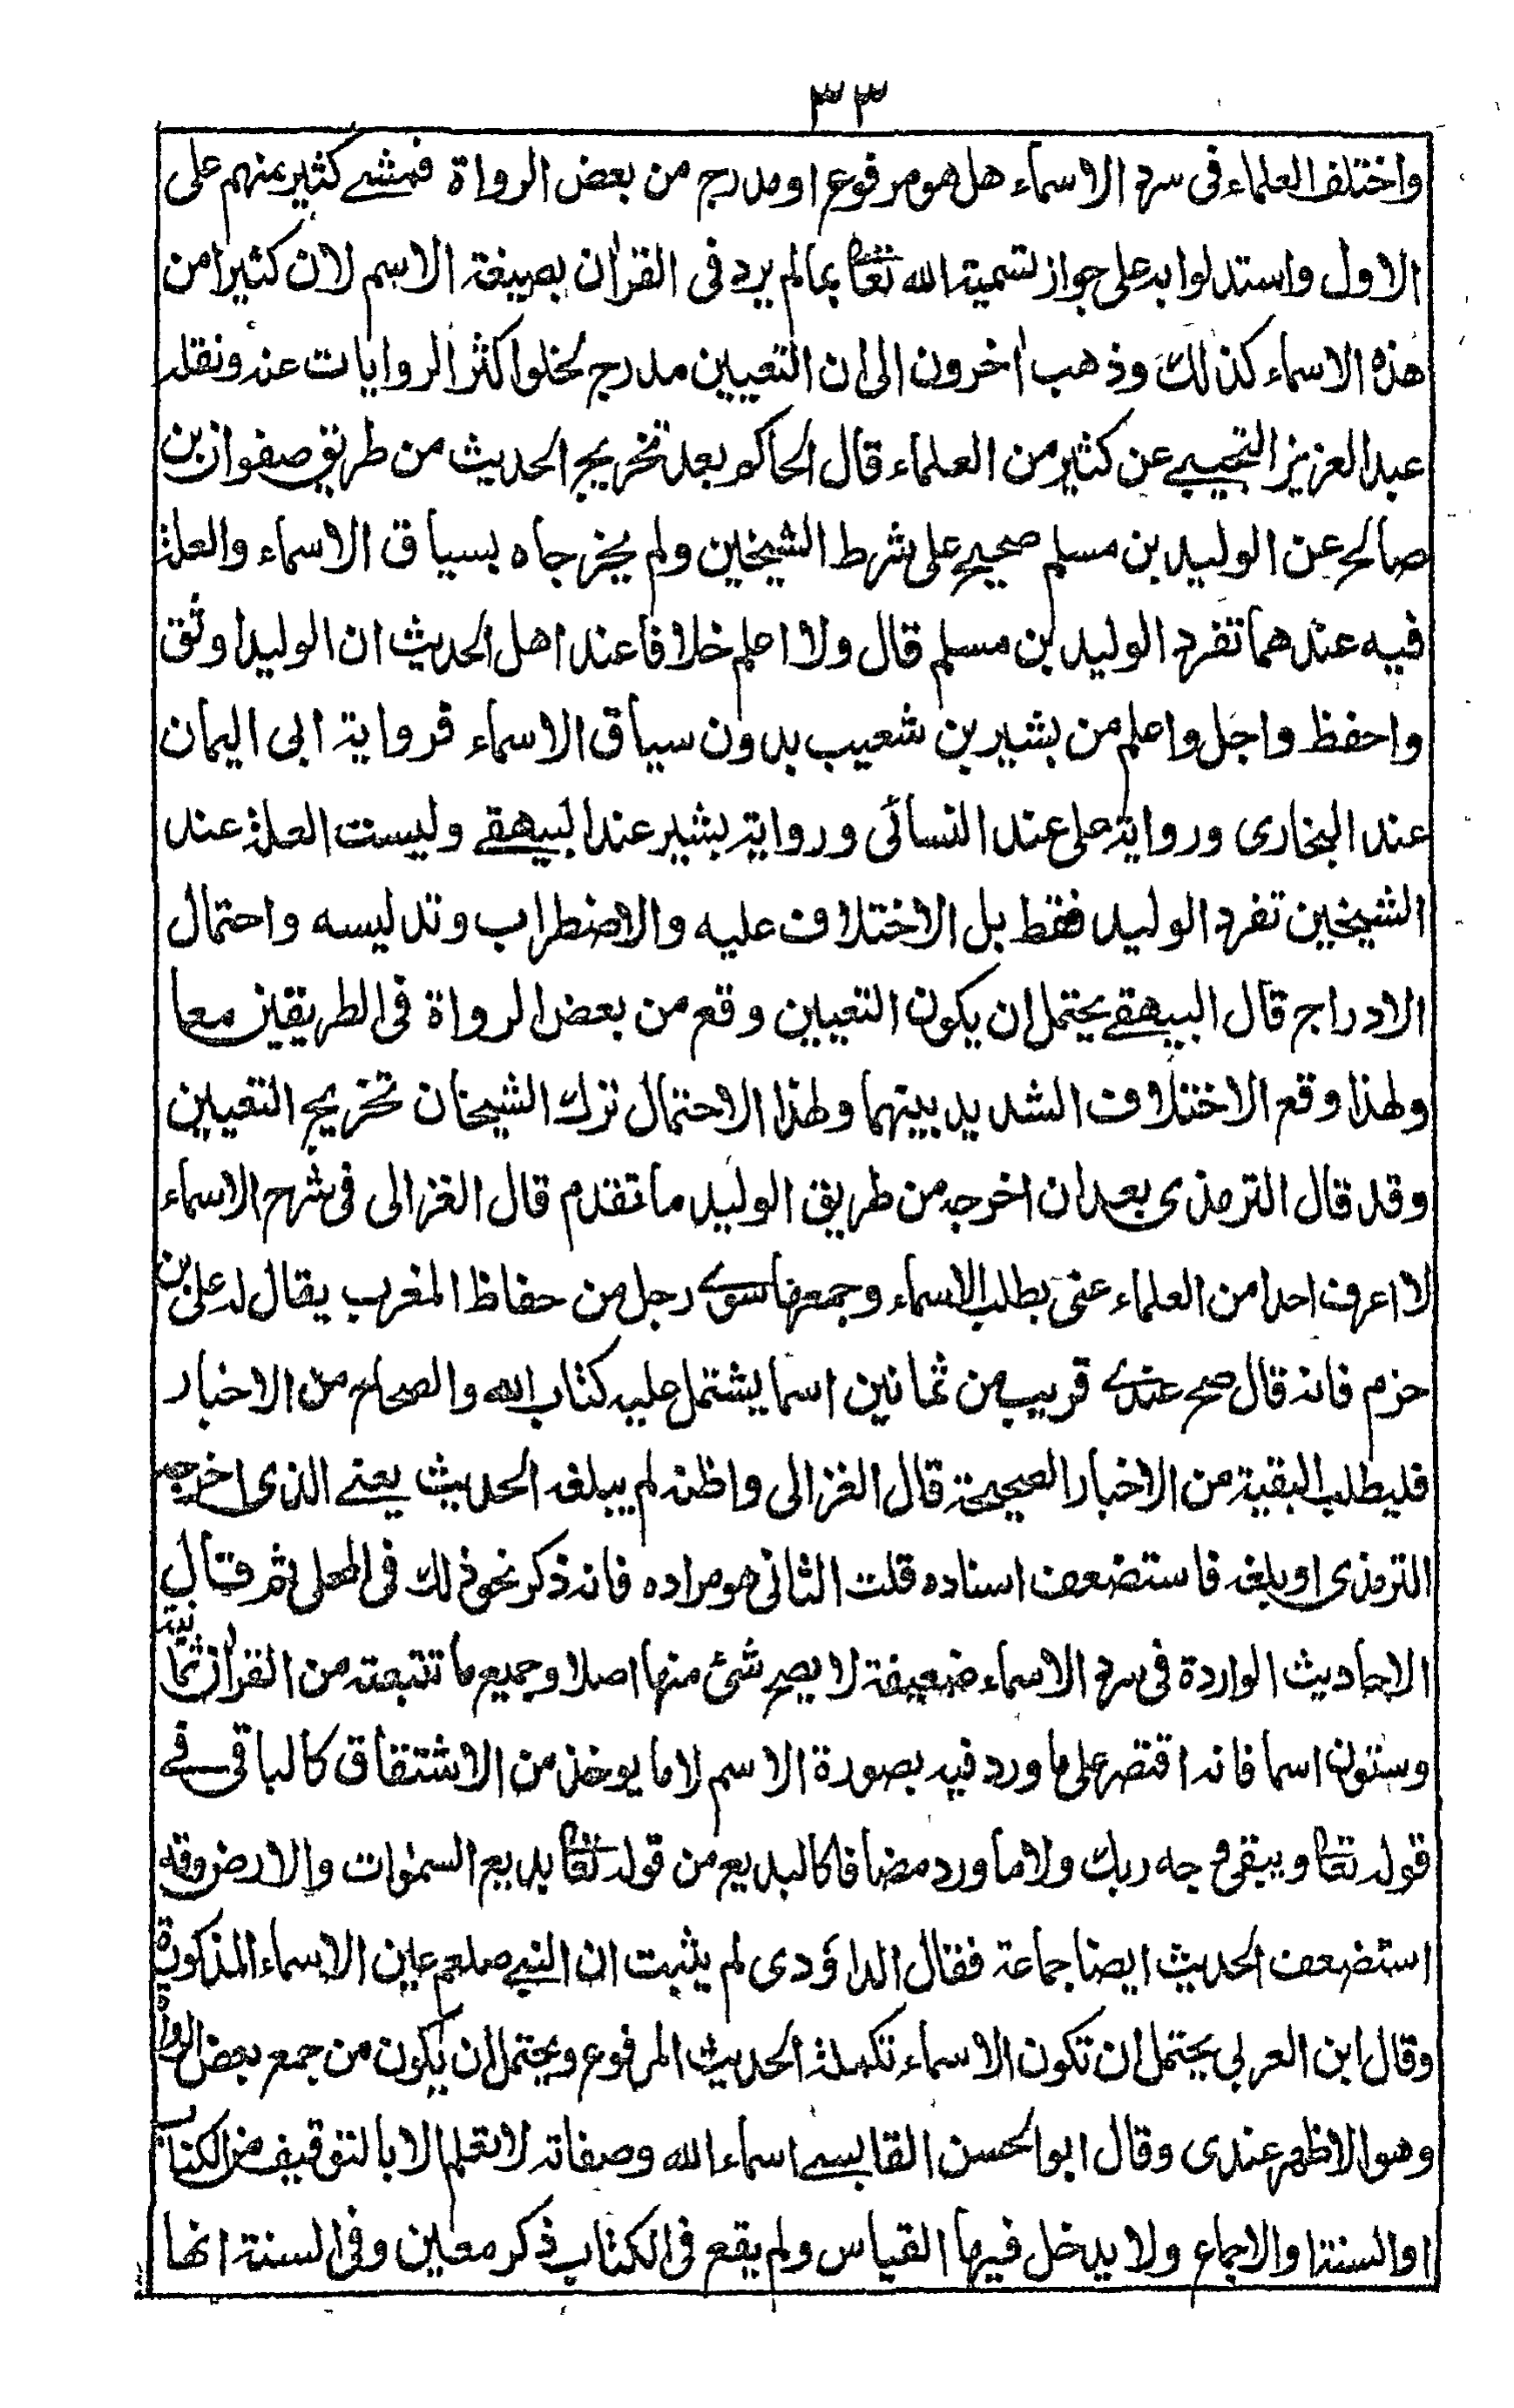 ٣٣
واختلف العلماء فى سرد الاسماء هل هو مرفوع او مدرج من بعض الرواة فمشى كثير منهم على
الاول واستدلوا به على جواز تسمية الله تعالى بما لم يرد فى القران بصيغة الاسم لان كثيرا من
هذه الاسماء كذلك وذهب اخرون الى ان التعيين مدرج لخلو اكثر الروايات عنه ونقله
عبد العزيز النخيبى عن كثير من العلماء قال الحاكم بعد تخريج الحديث من طريق صفوان بن
صالح عن الوليد بن مسلم صحيح على شرط الشيخين ولم يخرجاه بسياق الاسماء والعلة
فيه عندهما تفرد الوليد بن مسلم قال ولا اعلم خلافا عند اهل الحديث ان الوليد اوثق
واحفظ واجل واعلم من بشير بن شعيب بدون سياق الاسماء فرواية ابى اليمان
عند البخارى ورواية على عند النسائى ورواية بشير عند البيهقى وليست العلة عند
الشيخين تفرد الوليد فقط بل الاختلاف عليه والاضطراب وتدليسه واحتمال
الادراج قال البيهقى يحتمل ان يكون التعيين وقع من بعض الرواة فى الطريقين معا
ولهذا وقع الاختلاف الشديد بينهما ولهذا الاحتمال ترك الشيخان تخريج التعيين
وقد قال الترمذى بعد ان اخرجه من طريق الوليد ما تقدم قال الغزالى فى شرح الاسماء
لا اعرف احدا من العلماء عنى بطلب الاسماء وجمعها سوى رجل من حفاظ المغرب يقال له على بن
حزم فانه قال صح عندى قريب من ثمانين اسما يشتمل عليه كتاب الله والصحاح من الاخبار
فليطلب البقية من الاخبار الصحيحة قال الغزالى واظنه لم يبلغه الحديث يعنى الذى اخرجه
الترمذى او بلغه فاستضعف اسناده قلت الثانى هو مراده فانه ذكر نحو ذلك فى المحلى ثم قال
الاحاديث الواردة فى سرد الاسماء ضعيفة لا يصح شئ منها اصلا وجميع ما تتبعته من القران ثمانية
وستون اسما فانه اقتصر على ما ورد فيه بصورة الاسم لا ما يوخذ من الاشتقاق كالباقى فى
قوله تعالى ويبقى وجه ربك ولا ما ورد مضافا كالبديع من قوله تعالى بديع السموات والارض وقد
استضعف الحديث ايضا جماعة فقال الداؤدى لم يثبت ان النبى صلعم عين الاسماء المذكورة
وقال ابن العربى يحتمل ان تكون الاسماء تكملة الحديث المرفوع ويحتمل ان يكون من جمع بعض الرواة
وهو الاظهر عندى وقال ابو الحسن القابسى اسماء الله وصفاته لا تعلم الا بالتوقيف من الكتاب
او السنة او الاجماع ولا يدخل فيها القياس ولم يقع فى الكتاب ذكر معين وفى السنة انها